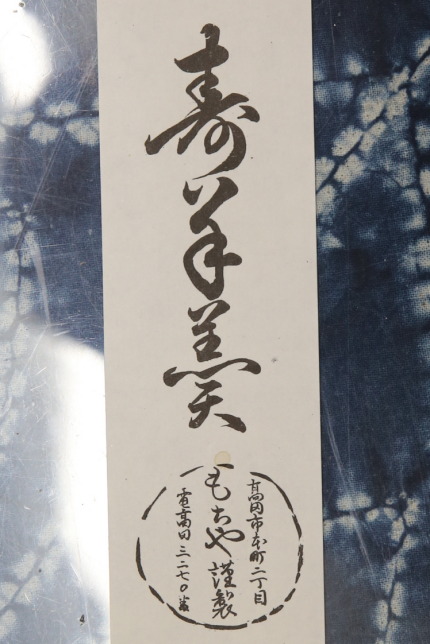 寿羊羹
高岡市本町二丁目
もちや謹製
電高田三二七〇番